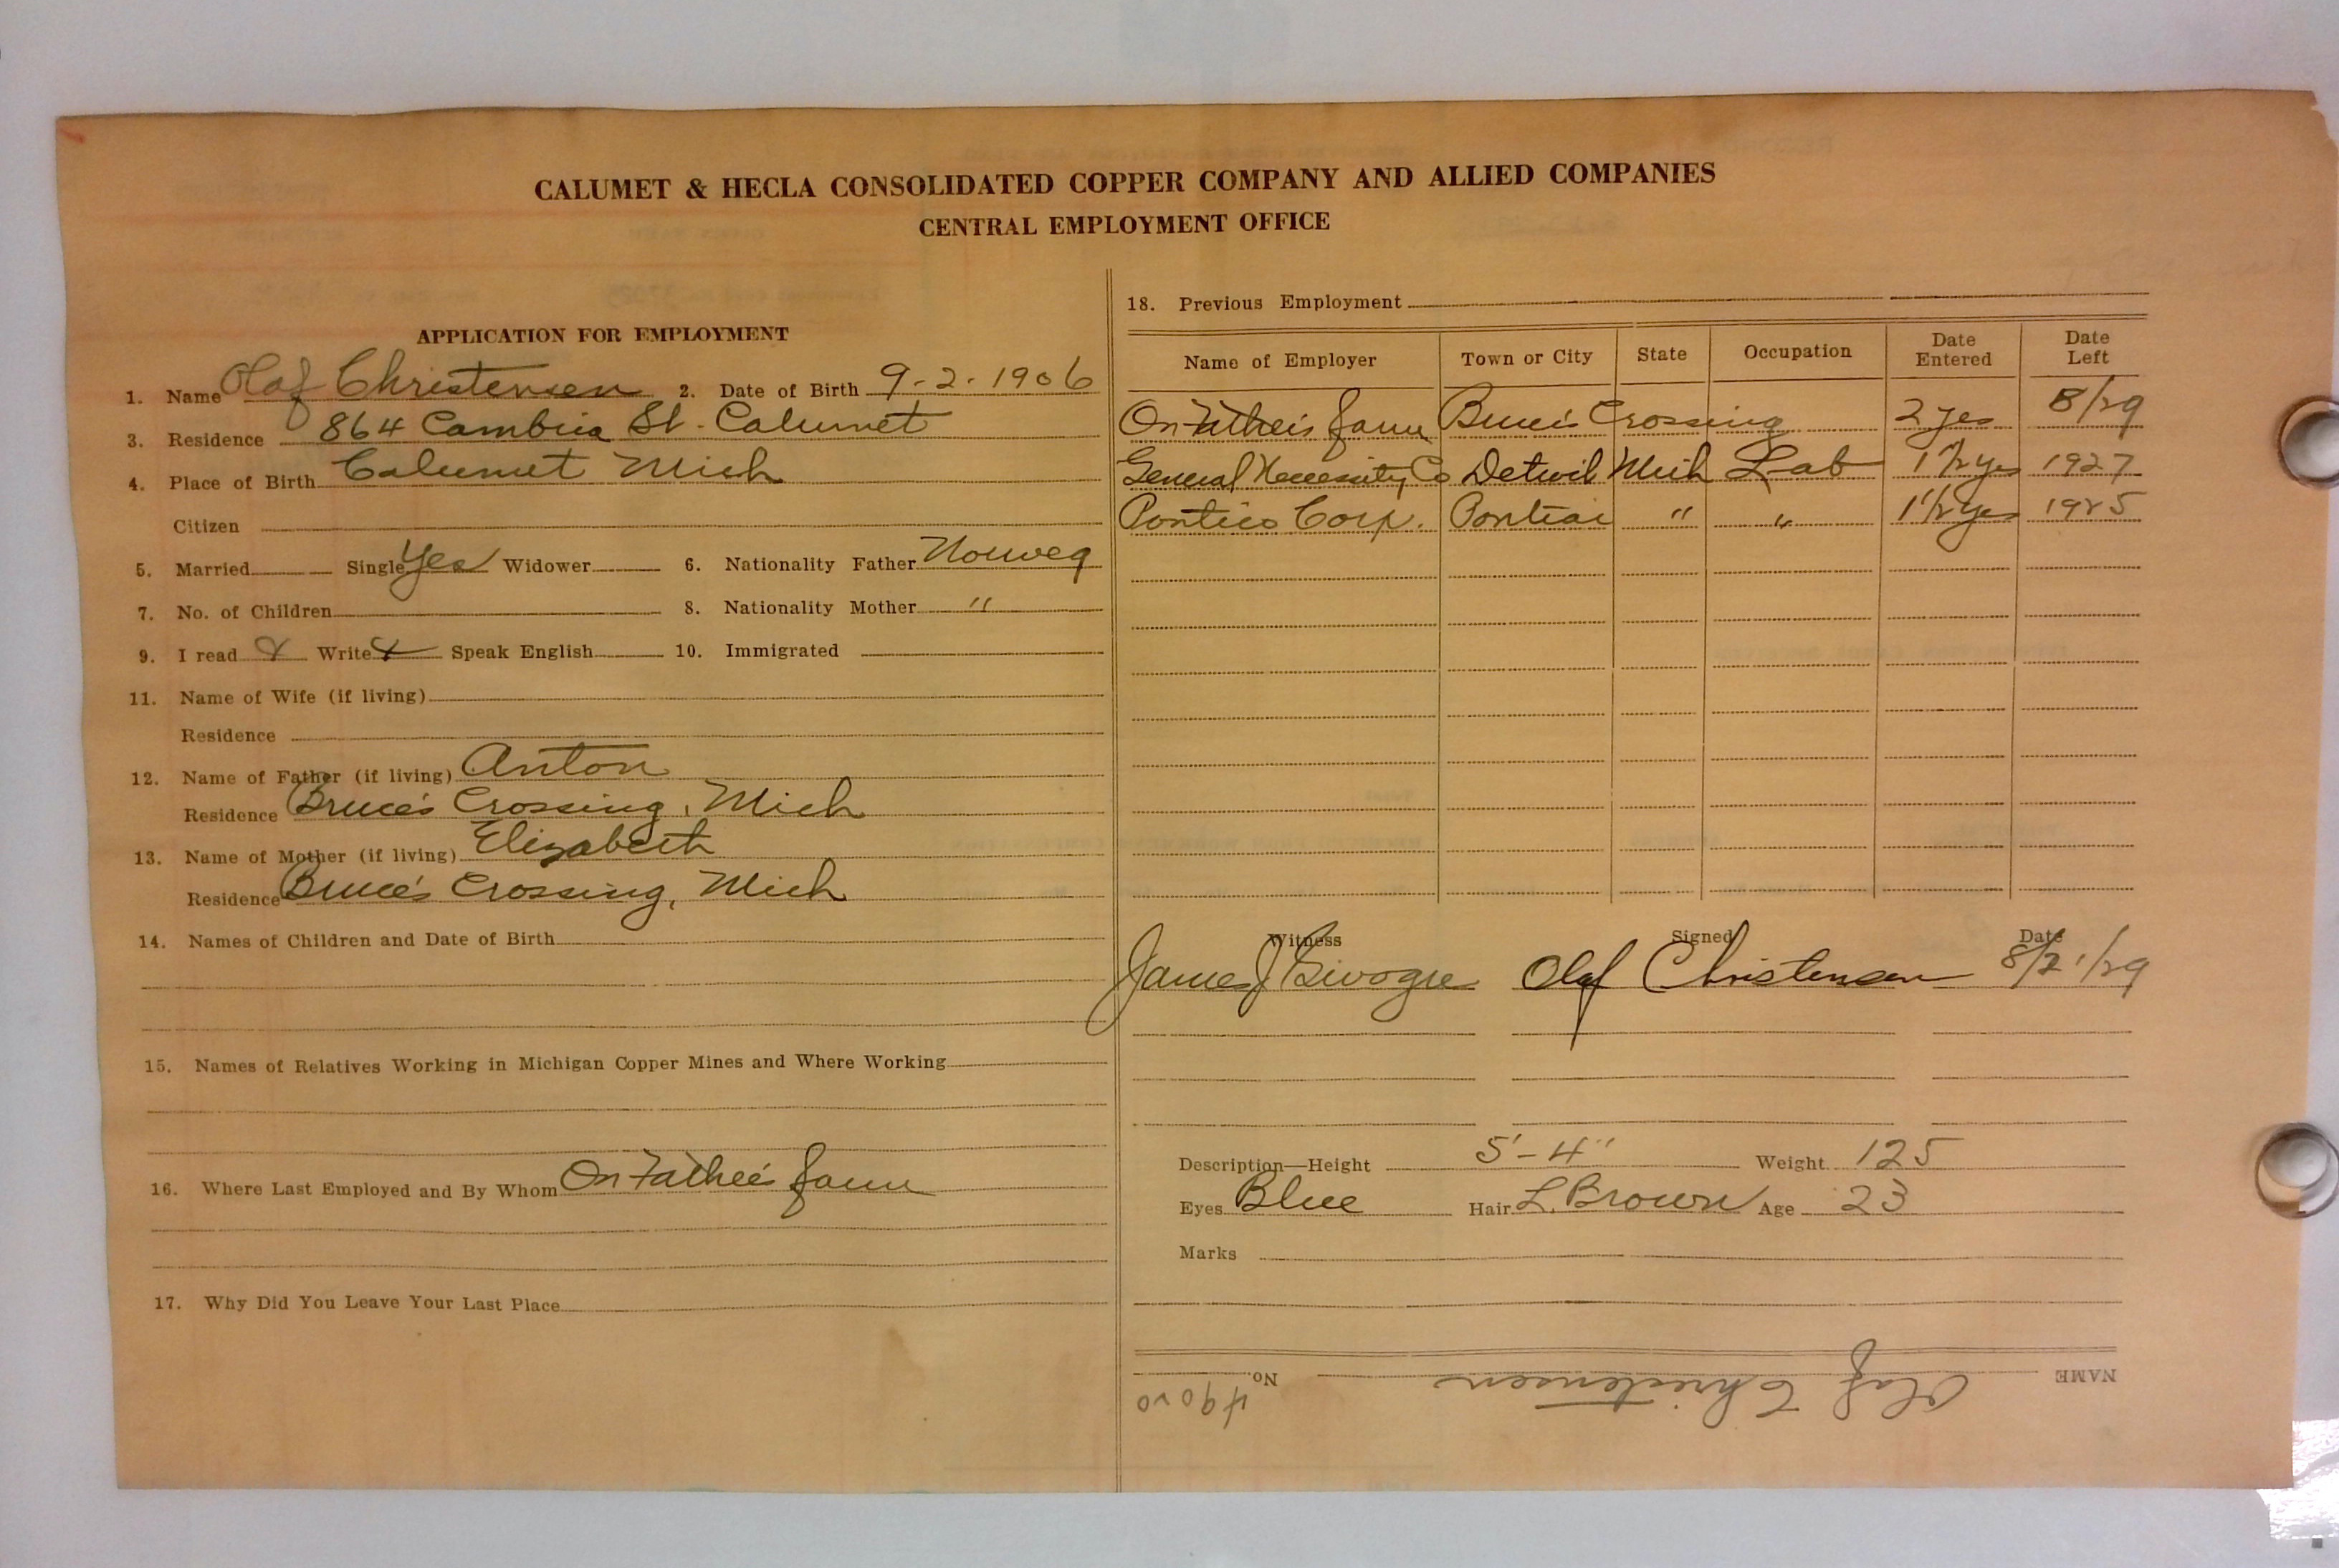 CALUMET & HECLA CONSOLIDATED COPPER COMPANY AND ALLIED COMPANIES
CENTRAL EMPLOYMENT OFFICE
APPLICATION FOR EMPLOYMENT
1. Name Olaf Christensen 2. Date of Birth 9-2-1906
3. Residence 864 Cambria St. Calumet
4. Place of Birth Calumet Mich
Citizen
5. Married Single Yes Widower 6. Nationality Father Norweg
7. No. of Children 8. Nationality Mother "
9. I read X Write X Speak English 10. Immigrated
11. Name of Wife (if living)
Residence
12. Name of Father (if living) Anton
Residence Bruce's Crossing, Mich
13. Name of Mother (if living) Elizabeth
Residence Bruce's Crossing, Mich
14. Names of Children and Date of Birth
15. Names of Relatives Working in Michigan Copper Mines and Where Working
16. Where Last Employed and By Whom On Father's farm
17. Why Did You Leave Your Last Place
18. Previous Employment
Name of Employer Town or City State Occupation Date Entered Date Left
On Father's farm Bruce's Crossing 2 yrs 8/29
General Necessity Co Detroit Mich Lab 1 1/2 yrs 1927
Pontiac Corp. Pontiac " " 1 1/2 yrs 1925
Witness Signed Date
James J Olaf Christensen 8/21/29
Description—Height 5'-4" Weight 125
Eyes Blue Hair L. Brown Age 23
Marks
NAME Olaf Christensen No. 49020